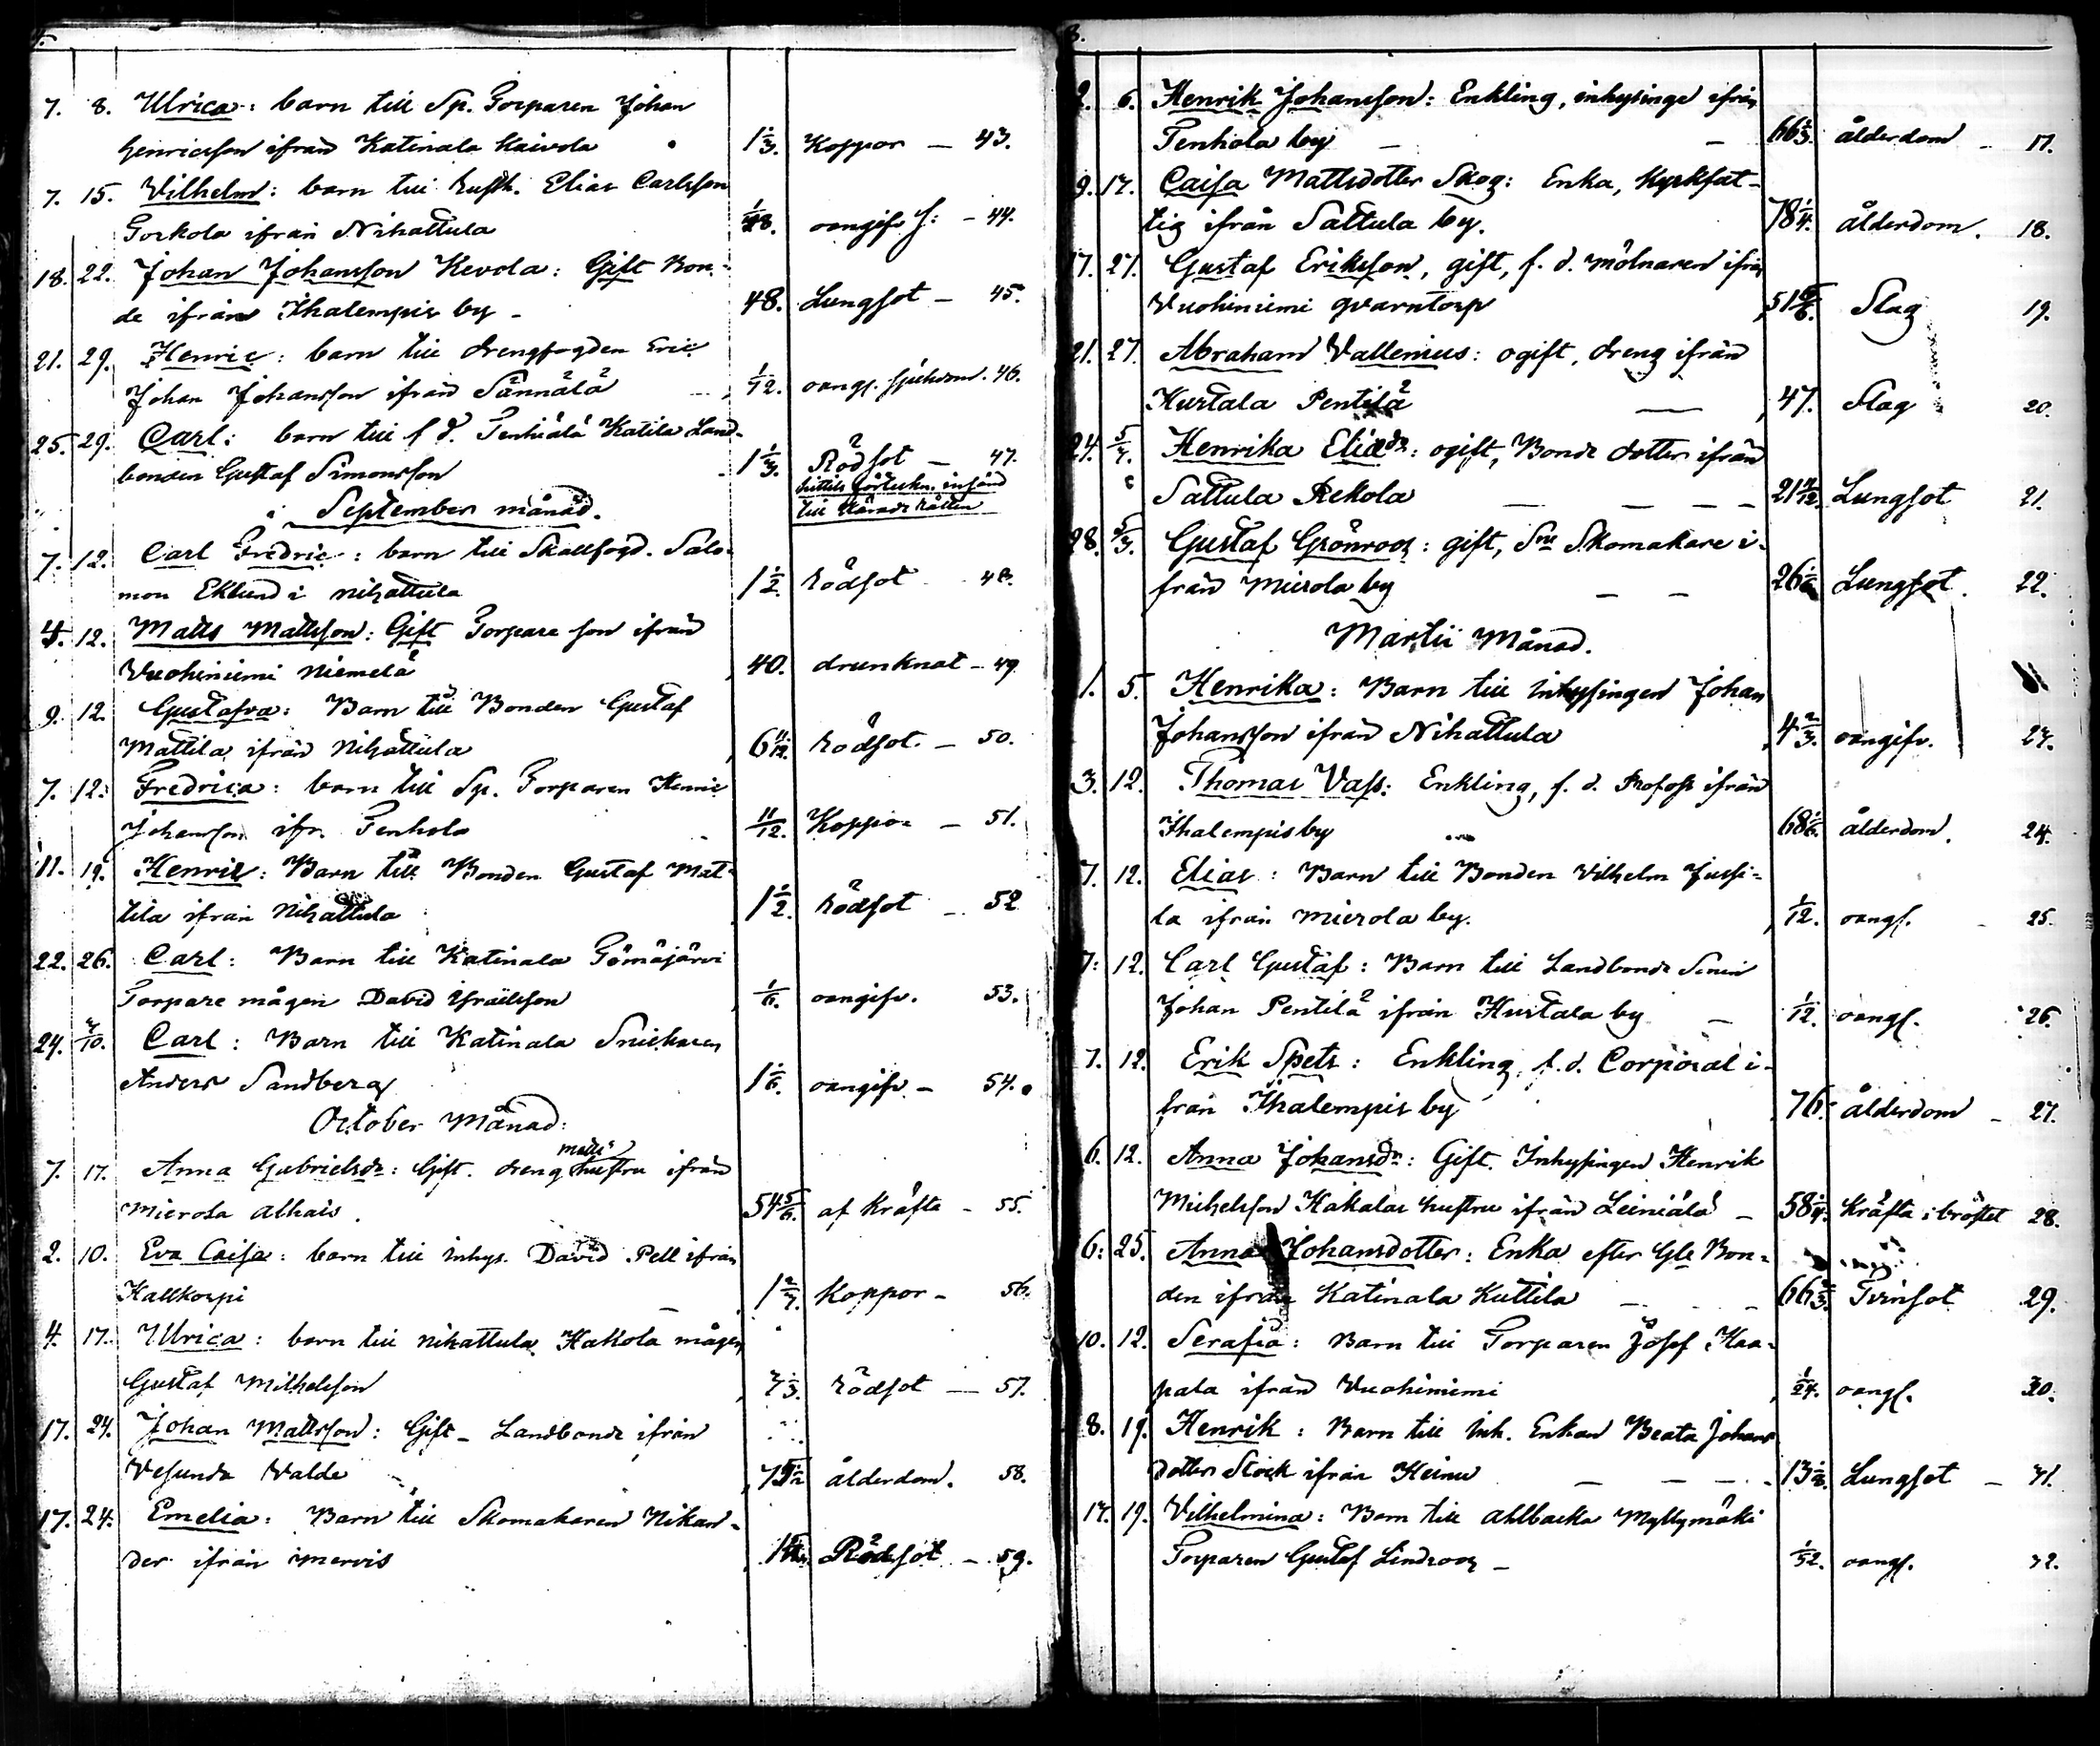 7. 8. Ulrica: barn till Sp. Torparen Johan
Henricsson ifrån Katinala Kaivola 1 1/3. Koppor — 43.
7. 15. Vilhelm: barn till Elias Carlsson
Torkola ifrån Nihattula oangifv. — 44.
18. 22. Johan Johansson Kevola: Gift Bon-
de ifrån Ihalempis by — 48. Lungsot — 45.
21. 29. Henric: barn till drengfogden Eric
Johan Johansson ifrån Sännälä 1/12. oangf. sjukdom. 46.
25. 29. Carl: barn till f d. Penhiälä Katila Land-
bonden Gustaf Simonsson 1 1/3. Rödsot — 47.
hittils insänd
till Härads Rätten
September månad.
7. 12. Carl Fredric: barn till Skallfogd. Salo-
mon Eklund i Nihattula 1 1/2. Rödsot 48.
4. 12. Matts Mattsson: Gift Torpare son ifrån
Vuohiniemi Niemelä 40. drunknat — 49
9. 12. Gustafva: Barn till Bonden Gustaf
Mattila ifrån Nihattula 6 11/12. Rödsot. — 50.
7. 12. Fredrica: barn till Sp. Torparen Henric
Johansson ifr. Tenhola 11/12. Koppor — 51.
11. 19. Henric: Barn till Bonden Gustaf Mat-
tila ifrån Nihattula 1 1/2. Rödsot — 52
22. 26. Carl: Barn till Katinala Tömäjärvi
Torpare mågen David Israelsson 1/6. oangifv. 53.
24. 3/10. Carl: Barn till Katinala Snickaren
Anders Sandberg 1 1/6. oangifv. — 54.
October Månad:
7. 17. Anna Gabrielsdr: Gift. dreng hustru ifrån
Mierola Alhais. 54 5/6. af Kräfta — 55.
2. 10. Eva Caisa: barn till inhys. David Pell ifrån
Hallkorpi 1 2/3. Koppor — 56.
4. 17. Ulrica: barn till Nihattula Hakola mågen
Gustaf Michelsson 3 1/3. Rödsot — 57.
17. 24. Johan Mattsson: Gift — Landbonde ifrån
Vesunda Valde ålderdom. 58.
17. 24. Emelia: Barn till Skomakaren Nikan-
der ifrån Mervis Rödsot — 59.
8.
2. 6. Henrik Johansson: Enkling, inhysinge ifrån
Tenhola by — — 66 1/3. ålderdom — 17.
9. 17. Caisa Mattsdotter Skog: Enka, Kyrkfat-
tig ifrån Sattula by. 78 1/4. ålderdom. 18.
17. 27. Gustaf Eriksson, gift, f. d. mölnaren ifrån
Vuohiniemi qvarntorp 51 5/6. Slag 19.
21. 27. Abraham Vallenius: ogift, dreng ifrån
Hurtala Pentilä — 47. Slag 20.
24. 5/3. Henrika Eliædr: ogift, Bonde dotter ifrån
Sattula Rekola — — — 21 7/12. Lungsot 21.
28. 5/3. Gustaf Grönroos: gift, Sne Skomakare i-
från Mierola by — — Lungsot. 22.
Martii Månad.
1. 5. Henrika: Barn till Inhysingen Johan
Johansson ifrån Nihattula 4 2/3. oangifv. 23.
3. 12. Thomas Vass: Enkling, f. d. Profoss ifrån
Ihalempis by 68 1/6. ålderdom. 24.
7. 12. Elias: Barn till Bonden Vilhelm Jussi-
la ifrån Mierola by. 1/12. oangf. 25.
7. 12. Carl Gustaf: Barn till Landbonde
Johan Pentilä ifrån Hurtala by — 1/12. oangf. 26.
7. 12. Erik Spets: Enkling, f. d. Corporal i-
från Ihalempis by 76. ålderdom — 27.
6. 12. Anna Johansdr: Gift. Inhysingen Henrik
Michelsson Hakalas hustru ifrån Leiniälä — 58 1/4. Kräfta i bröstet 28.
6. 25. Anna Johansdotter: Enka efter Gle Bon-
den ifrån Katinala Kuttila — — 66 2/3. Tvinsot 29.
10. 12. Serafia: Barn till Torparen Josef Haa-
pala ifrån Vuohiniemi 1/24. oangf. 30.
8. 19. Henrik: Barn till Inh. Enkan Beata Johans
dotter Stock ifrån Heinu — — — Lungsot — 31.
17. 19. Vilhelmina: Barn till Ahlbacka Myllymäki
Torparen Gustaf Lindroos — 1/52. oangf. 32.